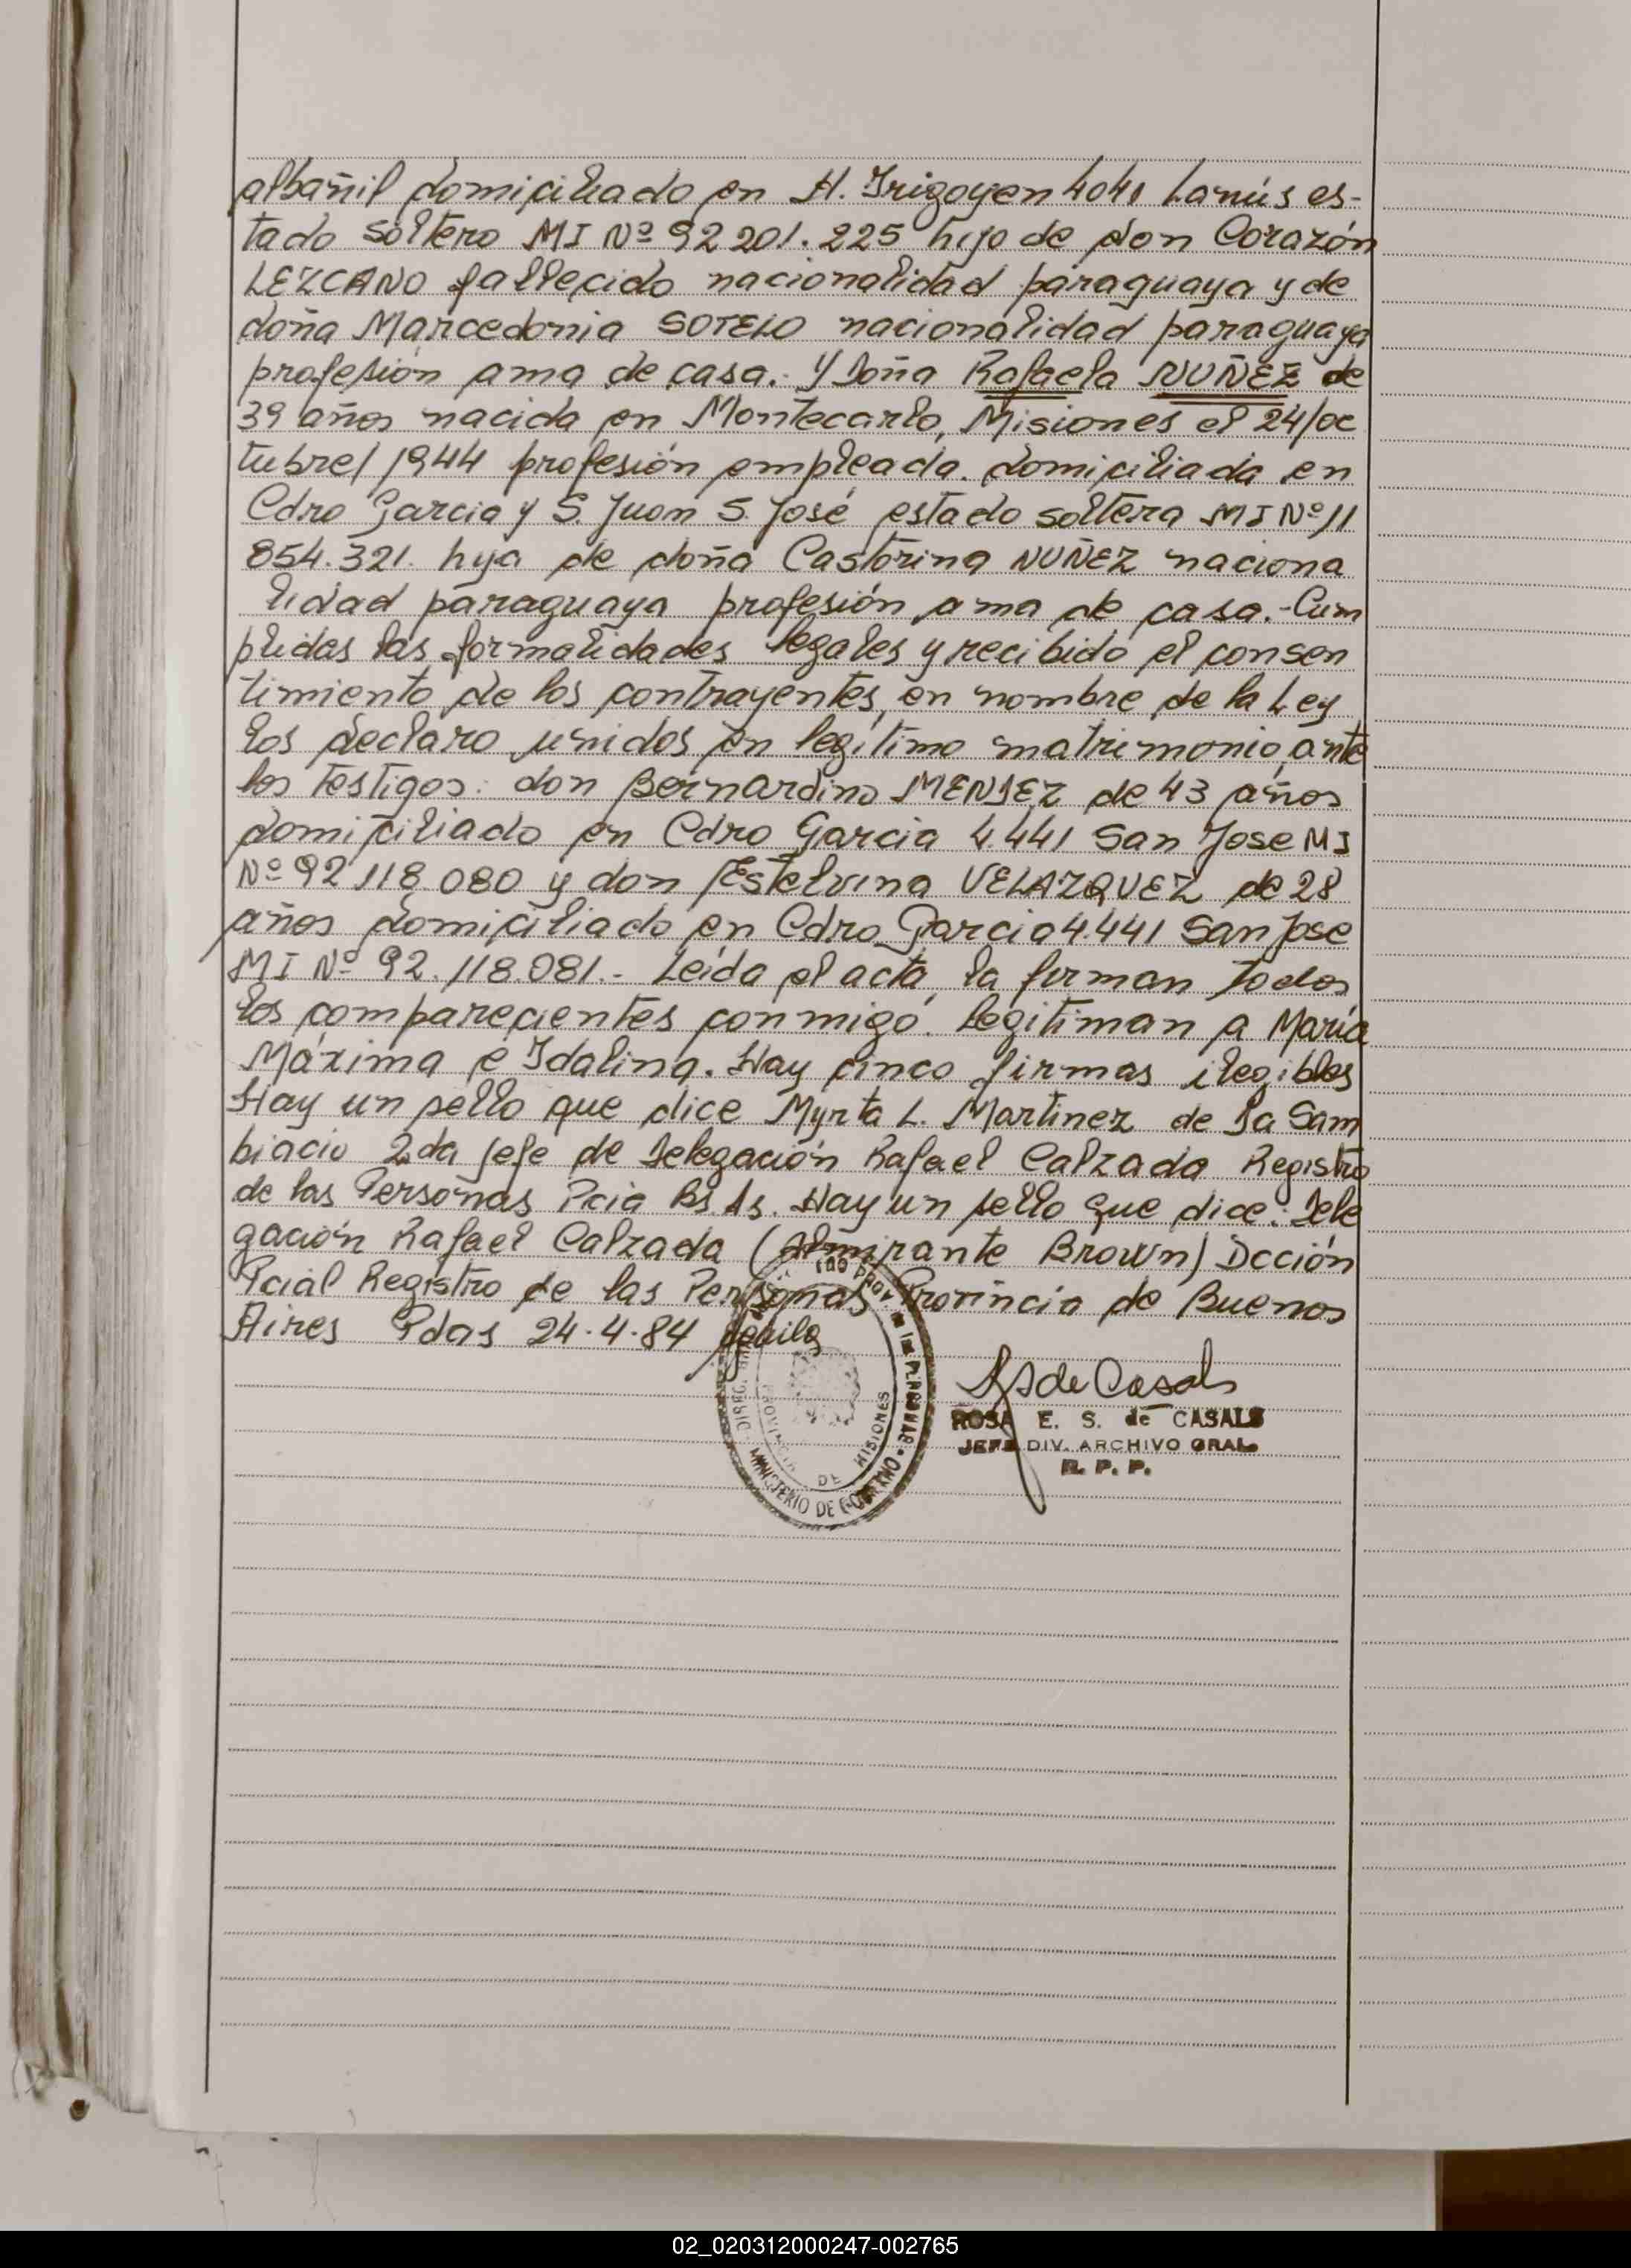 albañil domiciliado en H. Irigoyen 4041 Lanús es-
tado soltero MI Nº 92 201.225 hijo de don Corazón
LEZCANO fallecido nacionalidad paraguaya y de
doña Marcedonia SOTELO nacionalidad paraguaya
profesión ama de casa.- Y Doña Rafaela NUÑEZ de
39 años nacida en Montecarlo, Misiones el 24/oc
tubre/1944 profesión empleada. domiciliada en
Cdro Garcia y S. Juan S. José estado soltera MI Nº 11
854.321. hija de doña Castorina NUÑEZ naciona
lidad paraguaya profesión ama de casa.- Cum
plidas las formalidades legales y recibido el consen
timiento de los contrayentes, en nombre de la Ley
los declaro unidos en legítimo matrimonio, ante
los testigos: don Bernardino MENDEZ de 43 años
domiciliado en Cdro Garcia 4.441 San Jose MI
Nº 92 118.080 y don Estelvina VELAZQUEZ de 28
años domiciliado en Cdro Garcia 4.441 San Jose
MI Nº 92.118.081.- Leída el acta, la firman todos
los comparecientes conmigo. Legitiman a María
Máxima e Idalina. Hay cinco firmas ilegibles
Hay un sello que dice Myrta L. Martinez de Da Sam
biacio 2da Jefe de Delegación Rafael Calzada Registro
de las Personas Pcia Bs. As. Hay un sello que dice: Dele
gación Rafael Calzada (Almirante Brown) Dcción
Pcial Registro de las Personas Provincia de Buenos
Aires Pdas 24.4.84
PROVINCIA DE MISIONES
MINISTERIO DE GOBIERNO
ROSA E. S. de CASALS
JEFE DIV. ARCHIVO GRAL.
R. P. P.
02_020312000247-002765